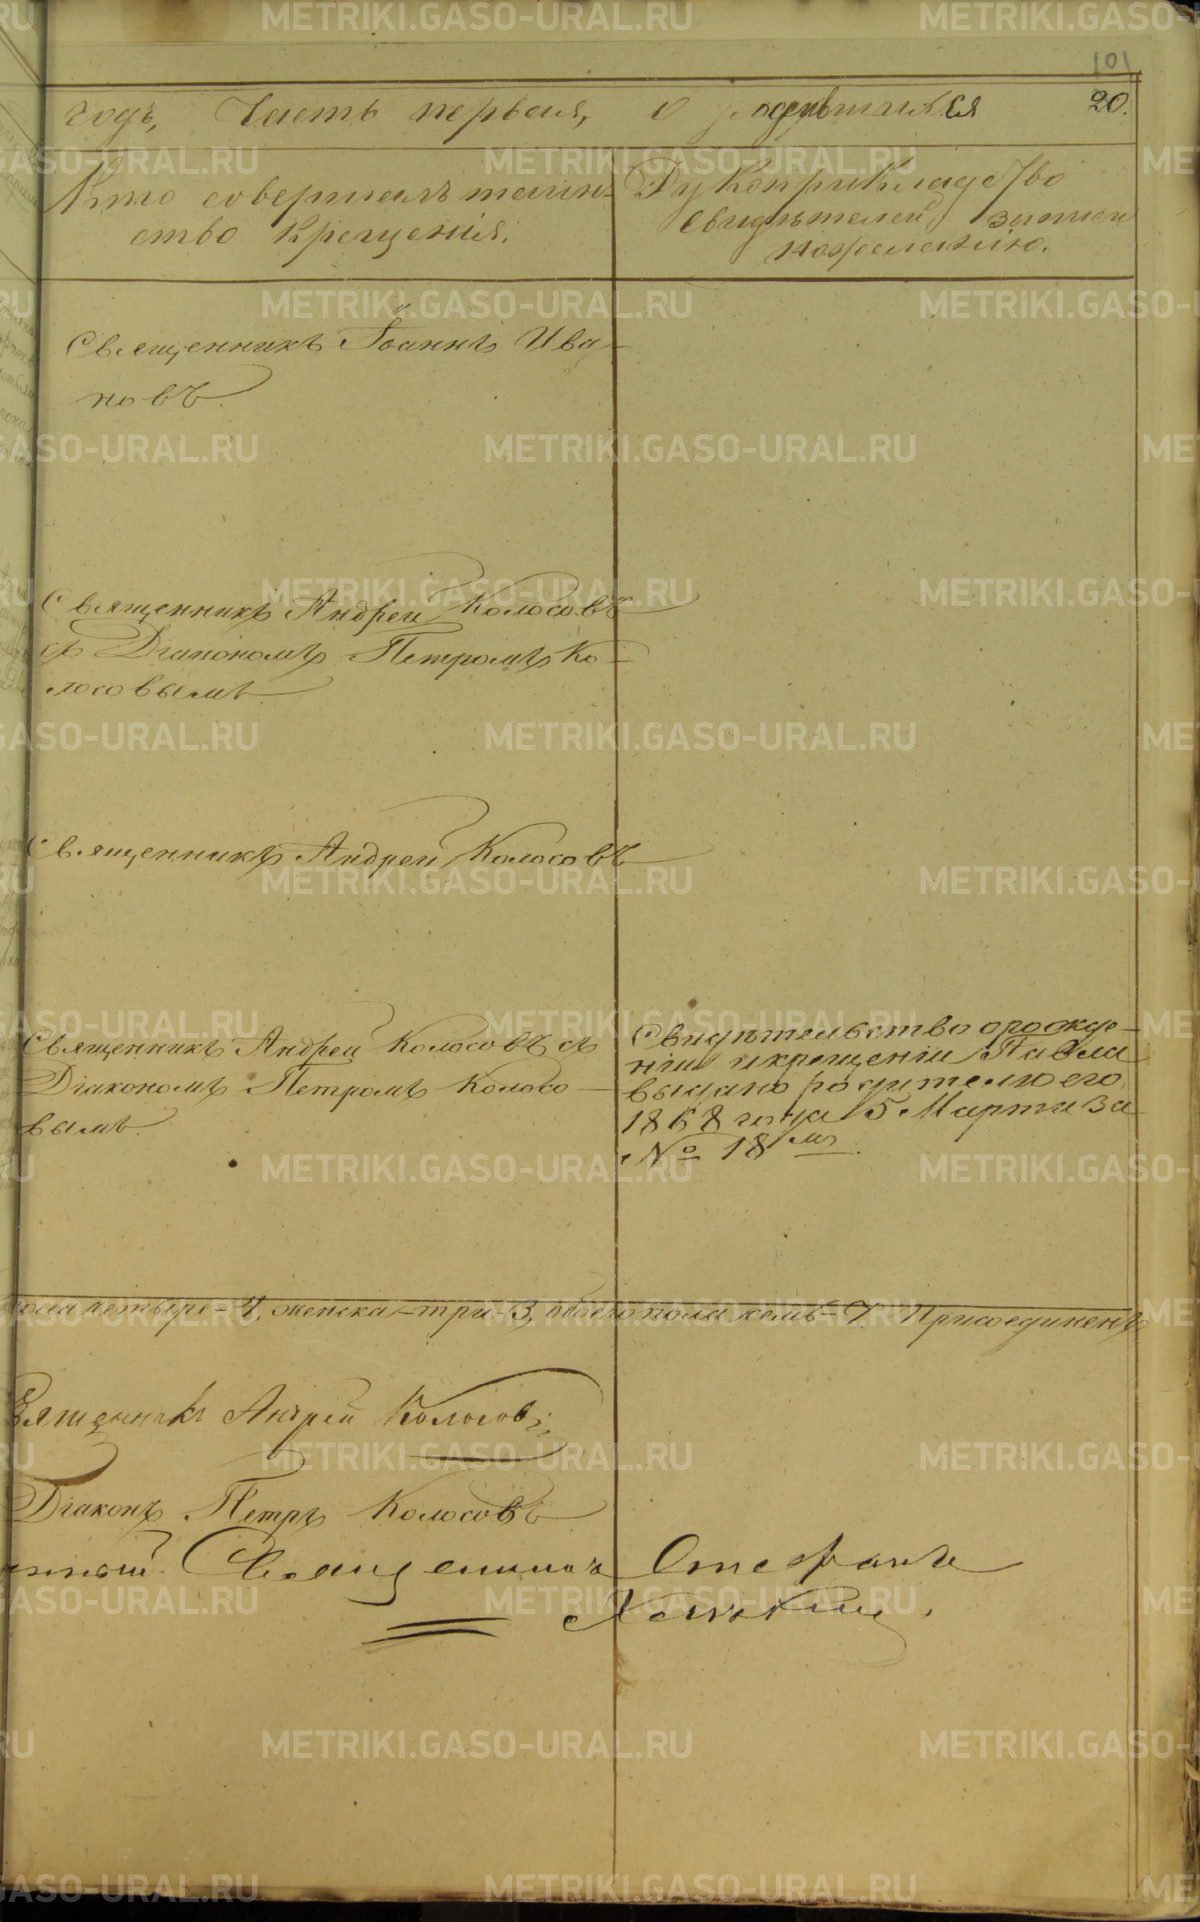 101
годъ, Часть первая, о родившихся 20.
Кто совершалъ таин-
ство крещенія.
Рукоприкладство
свидѣтелей записи
по желанію.
Священникъ Іоаннъ Ива-
новъ.
Священникъ Андрей Колосовъ
съ Діакономъ Петромъ Ко-
лосовымъ.
Священникъ Андрей Колосовъ
Священникъ Андрей Колосовъ съ
Діакономъ Петромъ Колосо-
вымъ.
Свидѣтельство о рожде-
ніи и крещеніи Павла
выдано родителю его
1868 года 5 Марта за
№ 18 мъ.
пола четыре - 4, женска - три - 3, обоего пола семь - 7. Присоединенъ
Священникъ Андрей Колосовъ
Діаконъ Петръ Колосовъ
Священникъ Стефанъ
METRIKI.GASO-URAL.RU